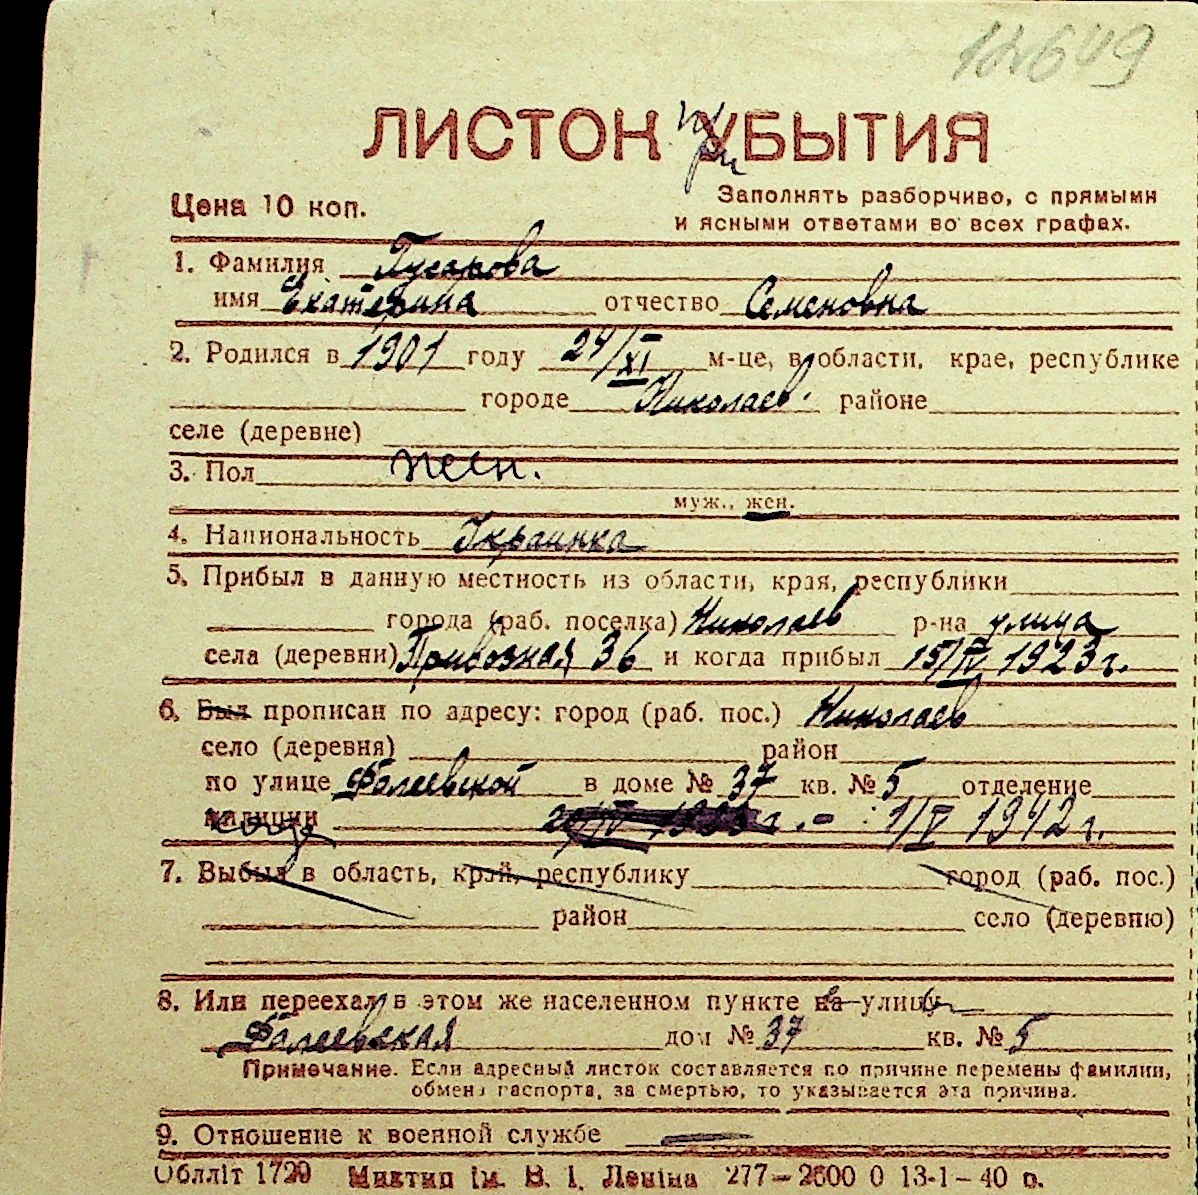 12649
ЛИСТОК УБЫТИЯ
при
Цена 10 коп.
Заполнять разборчиво, с прямыми
и ясными ответами во всех графах.
1. Фамилия Гусарова
имя Екатерина отчество Семеновна
2. Родился в 1901 году 24/XI м-це, в области, крае, республике
городе Николаев. районе
селе (деревне)
3. Пол жен.
муж., жен.
4. Национальность Украинка
5. Прибыл в данную местность из области, края, республики
города (раб. поселка) Николаев р-на улица
села (деревни) Привозная 36 и когда прибыл 15/IV 1923 г.
6. Был прописан по адресу: город (раб. пос.) Николаев
село (деревня) район
по улице Фалеевской в доме № 37 кв. № 5 отделение
милиции 1/V 1942 г.
7. Выбыл в область, край, республику город (раб. пос.)
район село (деревню)
8. Или переехал в этом же населенном пункте на улицу
Фалеевская дом № 37 кв. № 5
Примечание. Если адресный листок составляется по причине перемены фамилии,
обмена паспорта, за смертью, то указывается эта причина.
9. Отношение к военной службе —
Облліт 1729 Миктип ім. В. І. Леніна 277—2600 0 13-1—40 р.